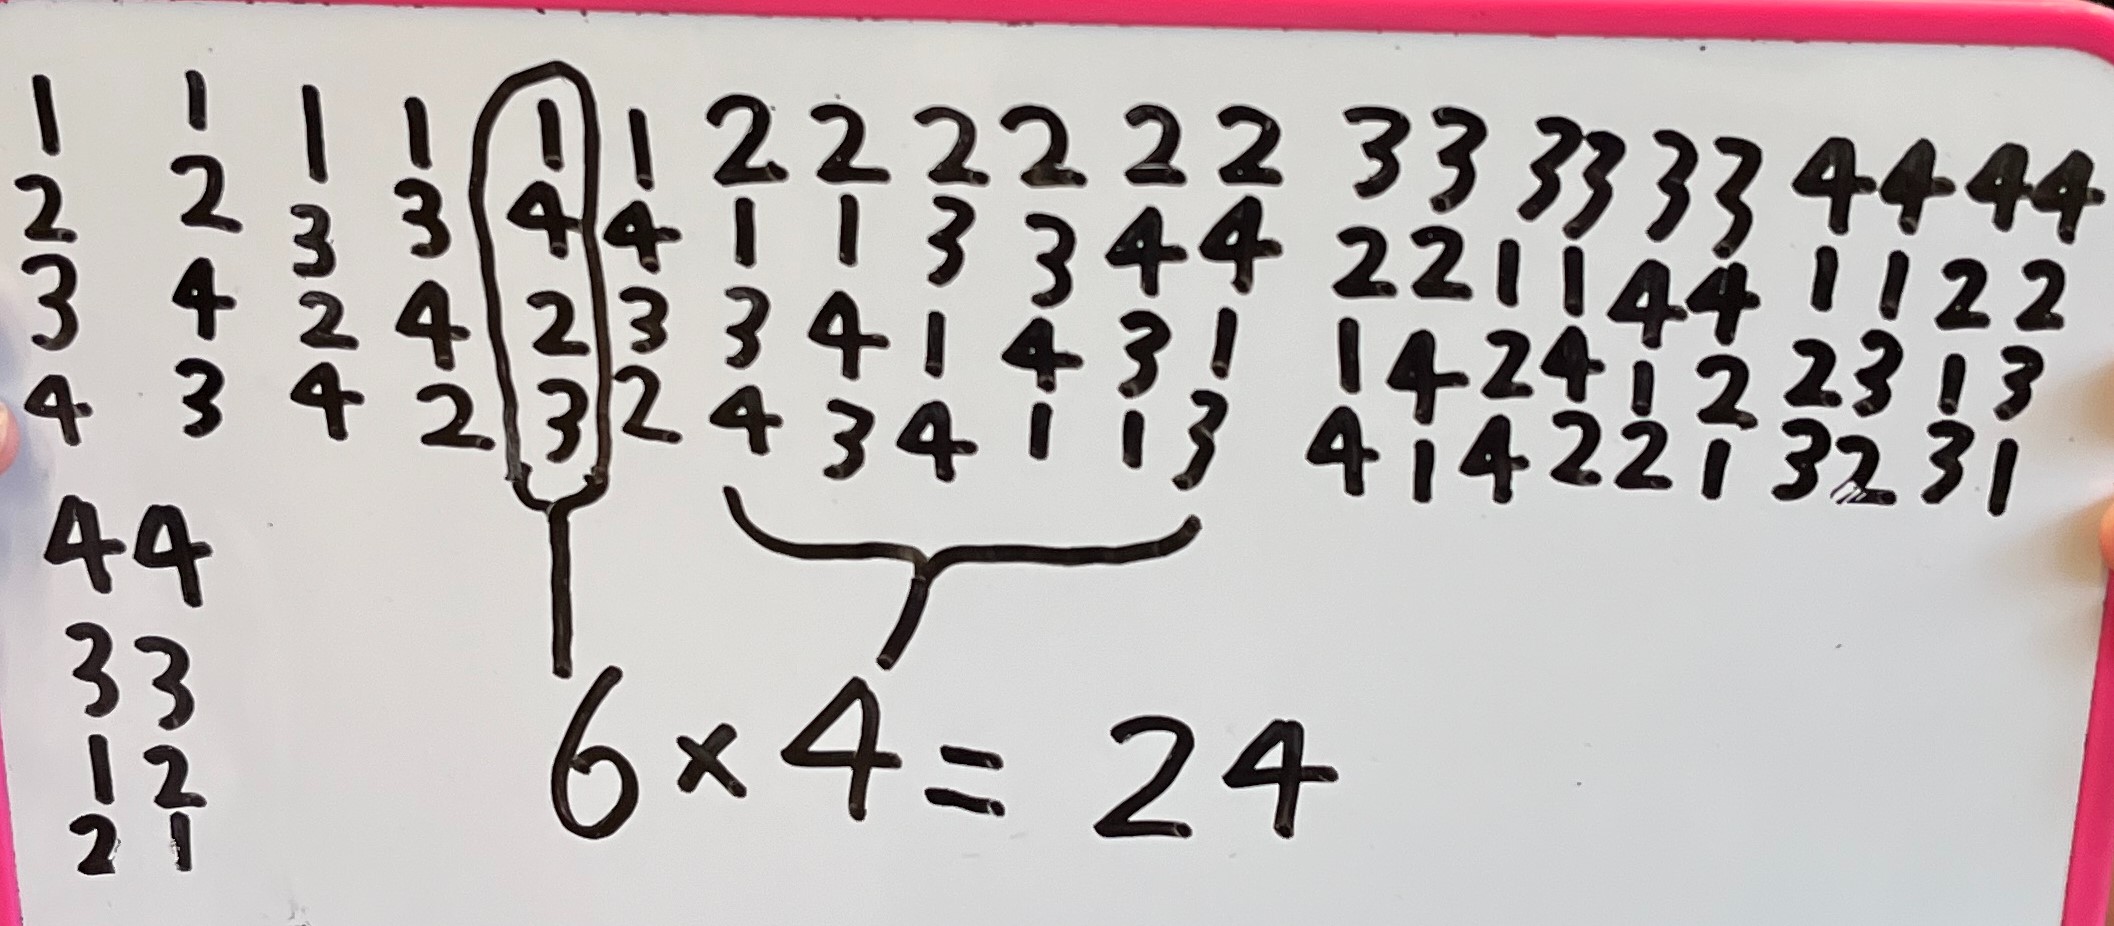 1 1 1 1 1 1 2 2 2 2 2 2 3 3 3 3 3 3 4 4 4 4
2 2 3 3 4 4 1 1 3 3 4 4 2 2 1 1 4 4 1 1 2 2
3 4 2 4 2 3 3 4 1 4 3 1 1 4 2 4 1 2 2 3 1 3
4 3 4 2 3 2 4 3 4 1 1 3 4 1 4 2 2 1 3 2 3 1
4 4
3 3
1 2
2 1
6 × 4 = 24